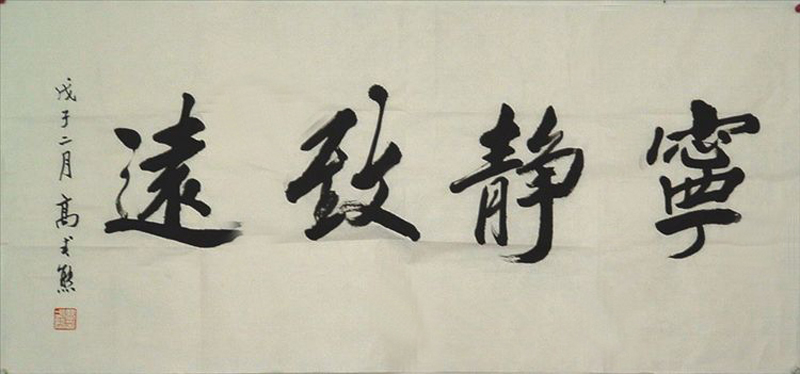 寧静致遠
戊子二月高式熊